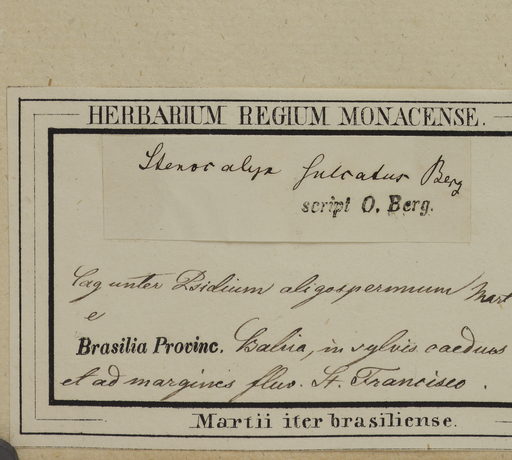 HERBARIUM REGIUM MONACENSE.
Stenocalyx sulcatus Berg
script O. Berg.
Lag unter Psidium oligospermum Mart
e
Brasilia Provinc. Bahia, in sylvis caeduis
et ad margines fluv. St. Francisco.
Martii iter brasiliense.